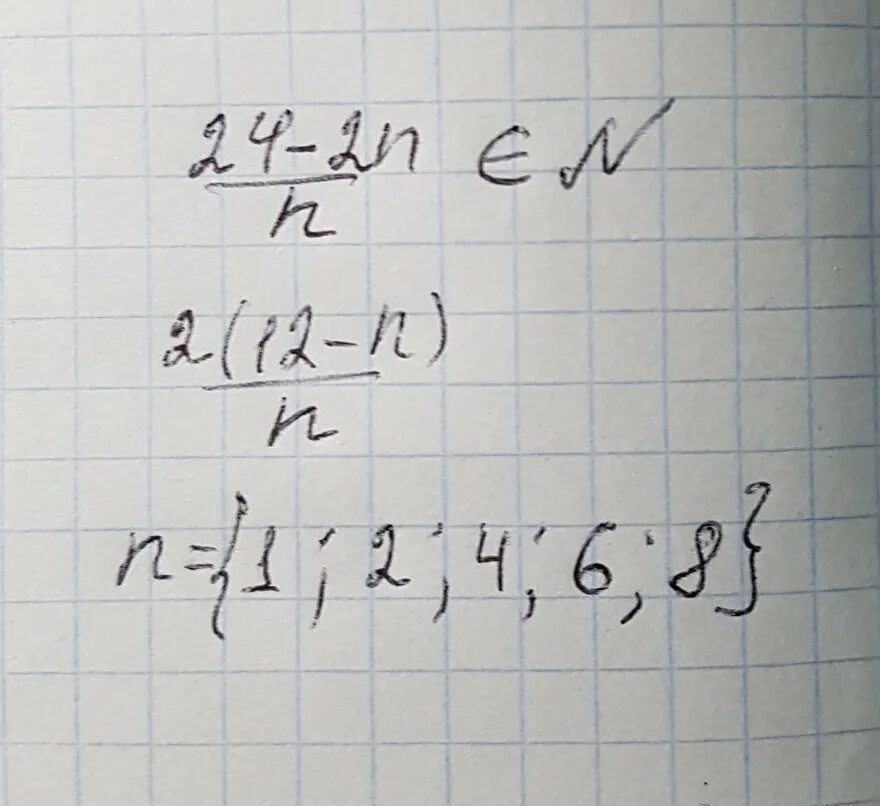 24-2n
n
∈ N
2(12-n)
n
n={1; 2; 4; 6; 8}